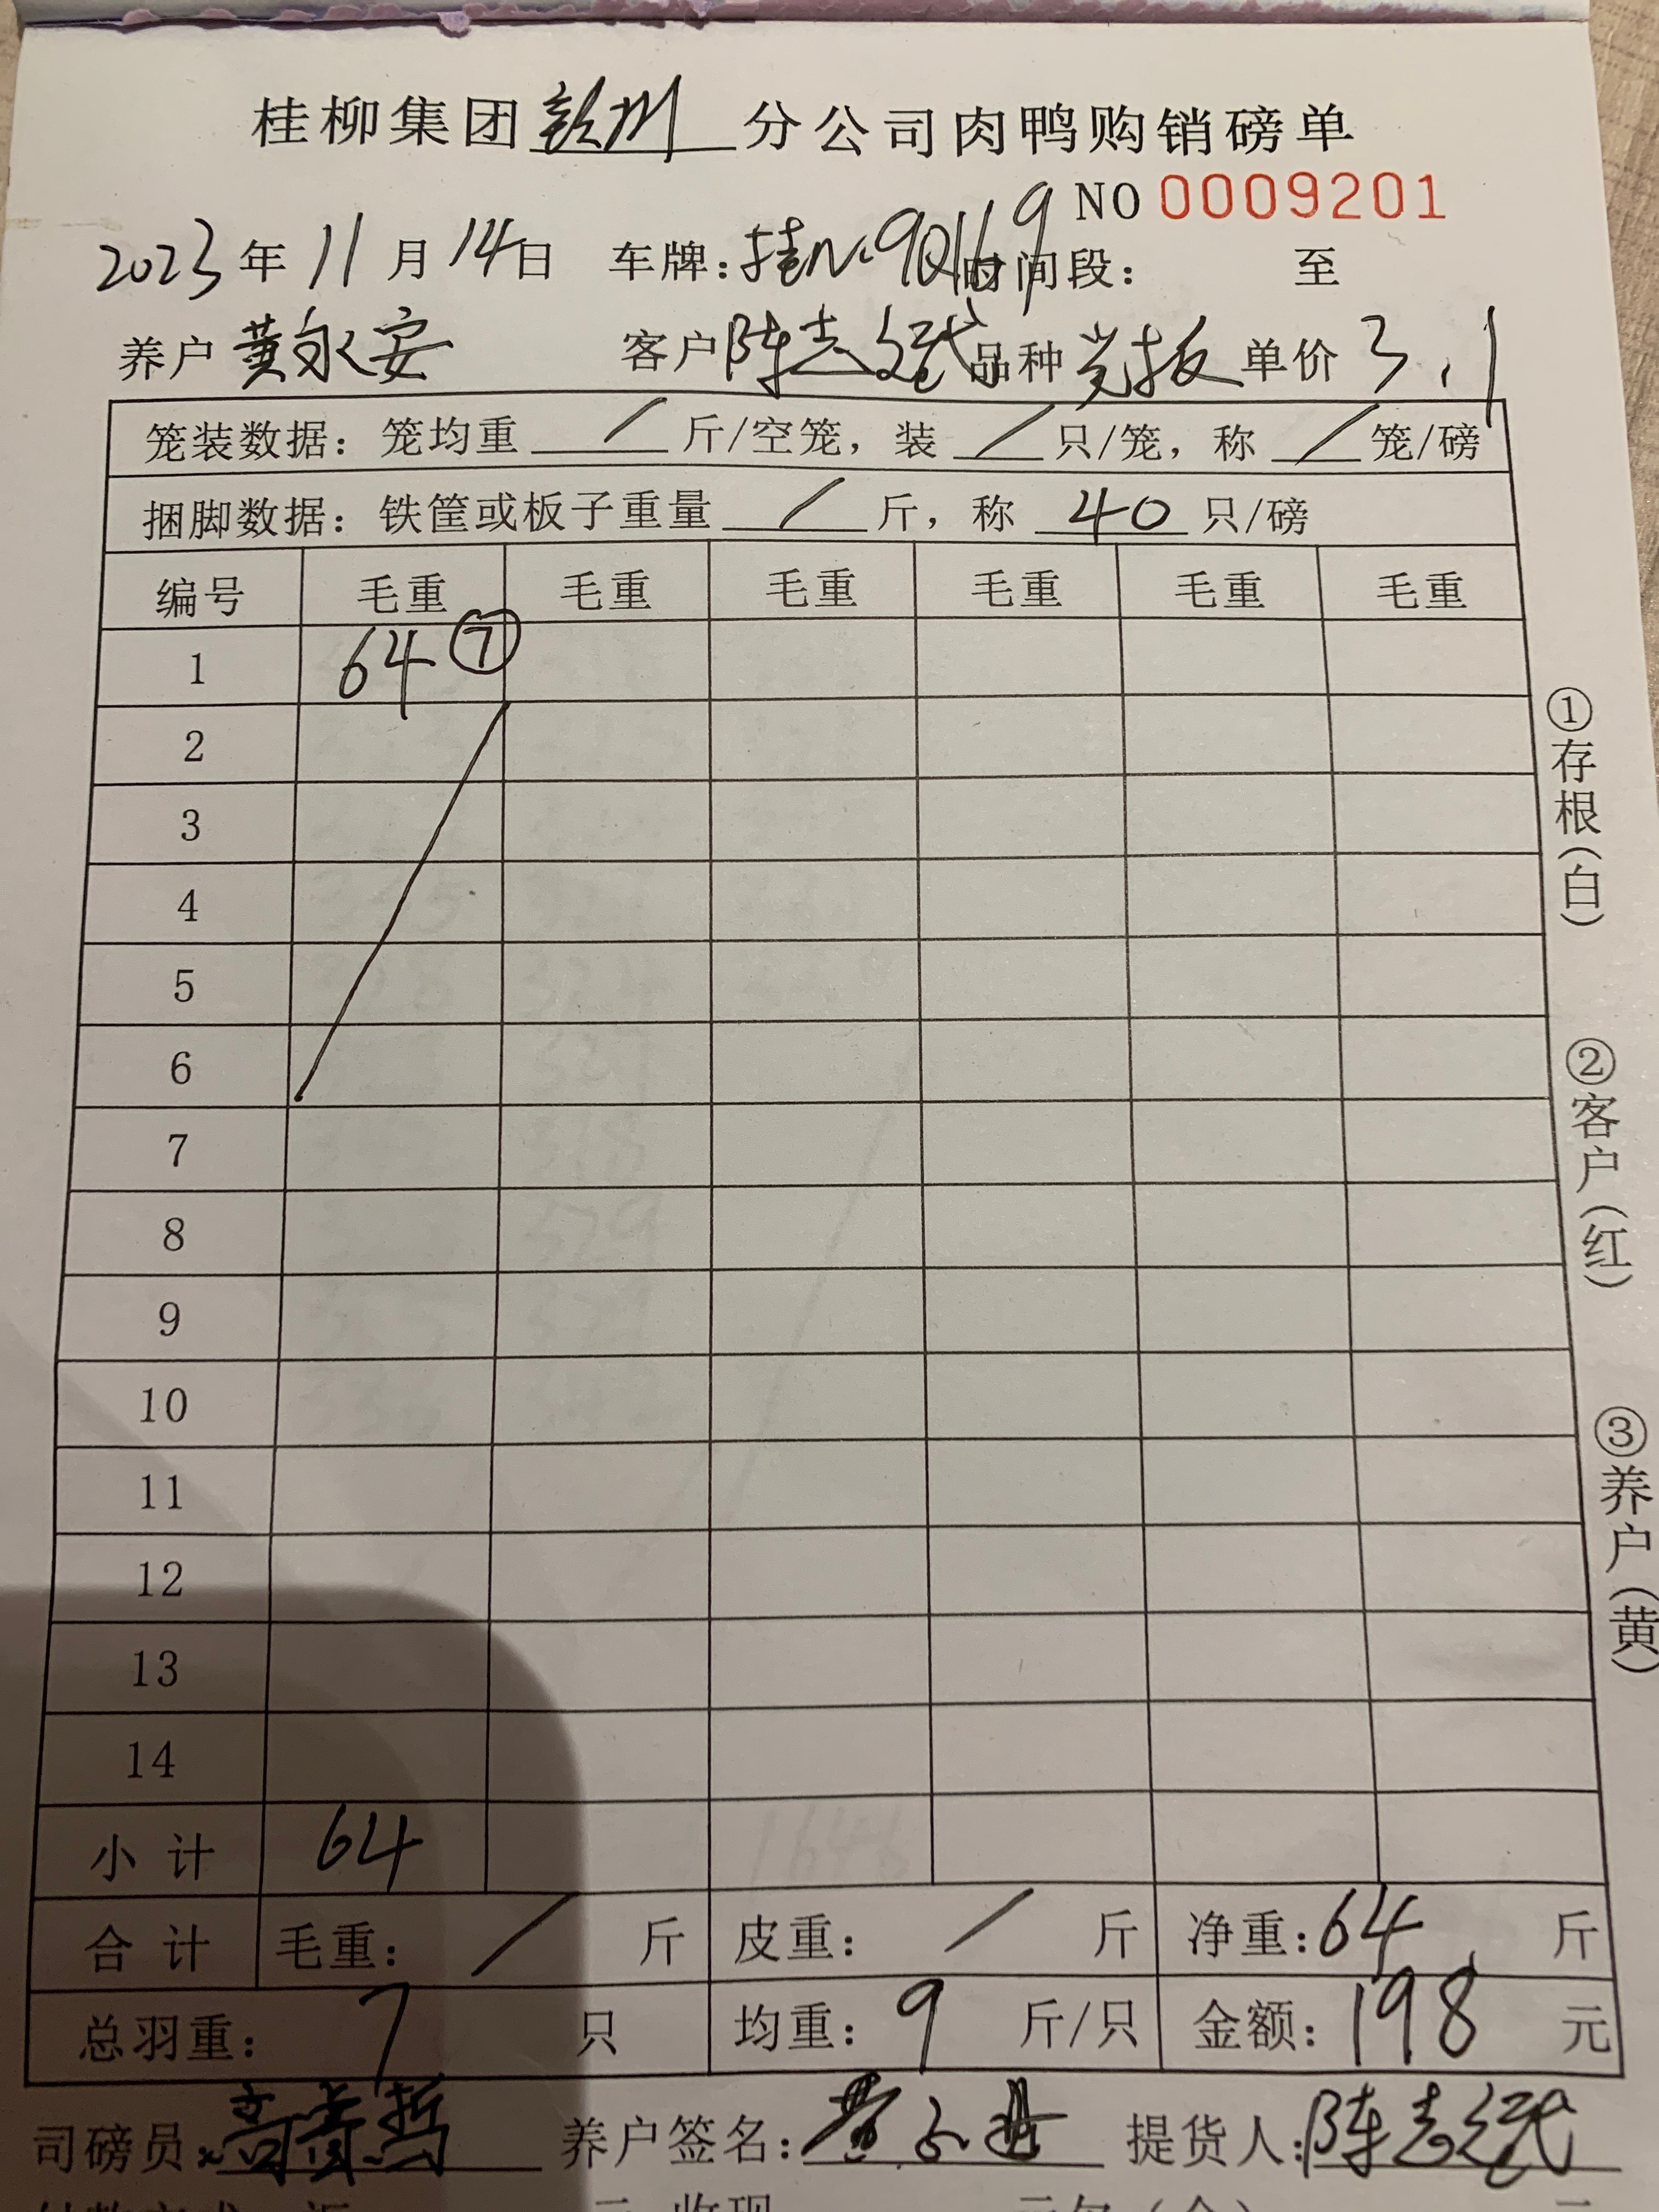 桂柳集团钦州分公司肉鸭购销磅单
NO 0009201
2023年11月14日 车牌:桂N·90169 时间段: 至
养户 黄永安 客户 陈志 品种 光板 单价 3.1
笼装数据:笼均重 / 斤/空笼,装 / 只/笼,称 / 笼/磅
捆脚数据:铁筐或板子重量 / 斤,称 40 只/磅
编号 毛重 毛重 毛重 毛重 毛重 毛重
1 64 ⑦
2
3
4
5
6
7
8
9
10
11
12
13
14
小计 64
合计 毛重: / 斤 皮重: / 斤 净重:64 斤
总羽重: 7 只 均重: 9 斤/只 金额:198 元
司磅员: 养户签名:黄 提货人:陈志
①存根(白)
②客户(红)
③养户(黄)